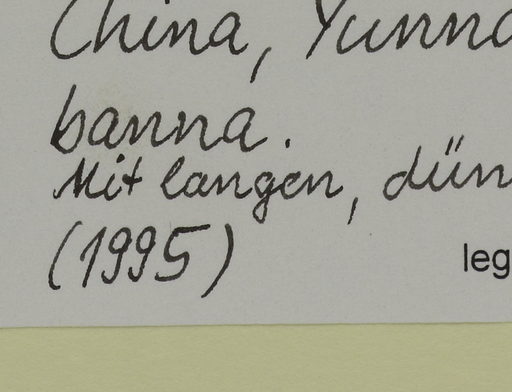 China, Yunna
banna.
Mit langen, dün
(1995)
leg